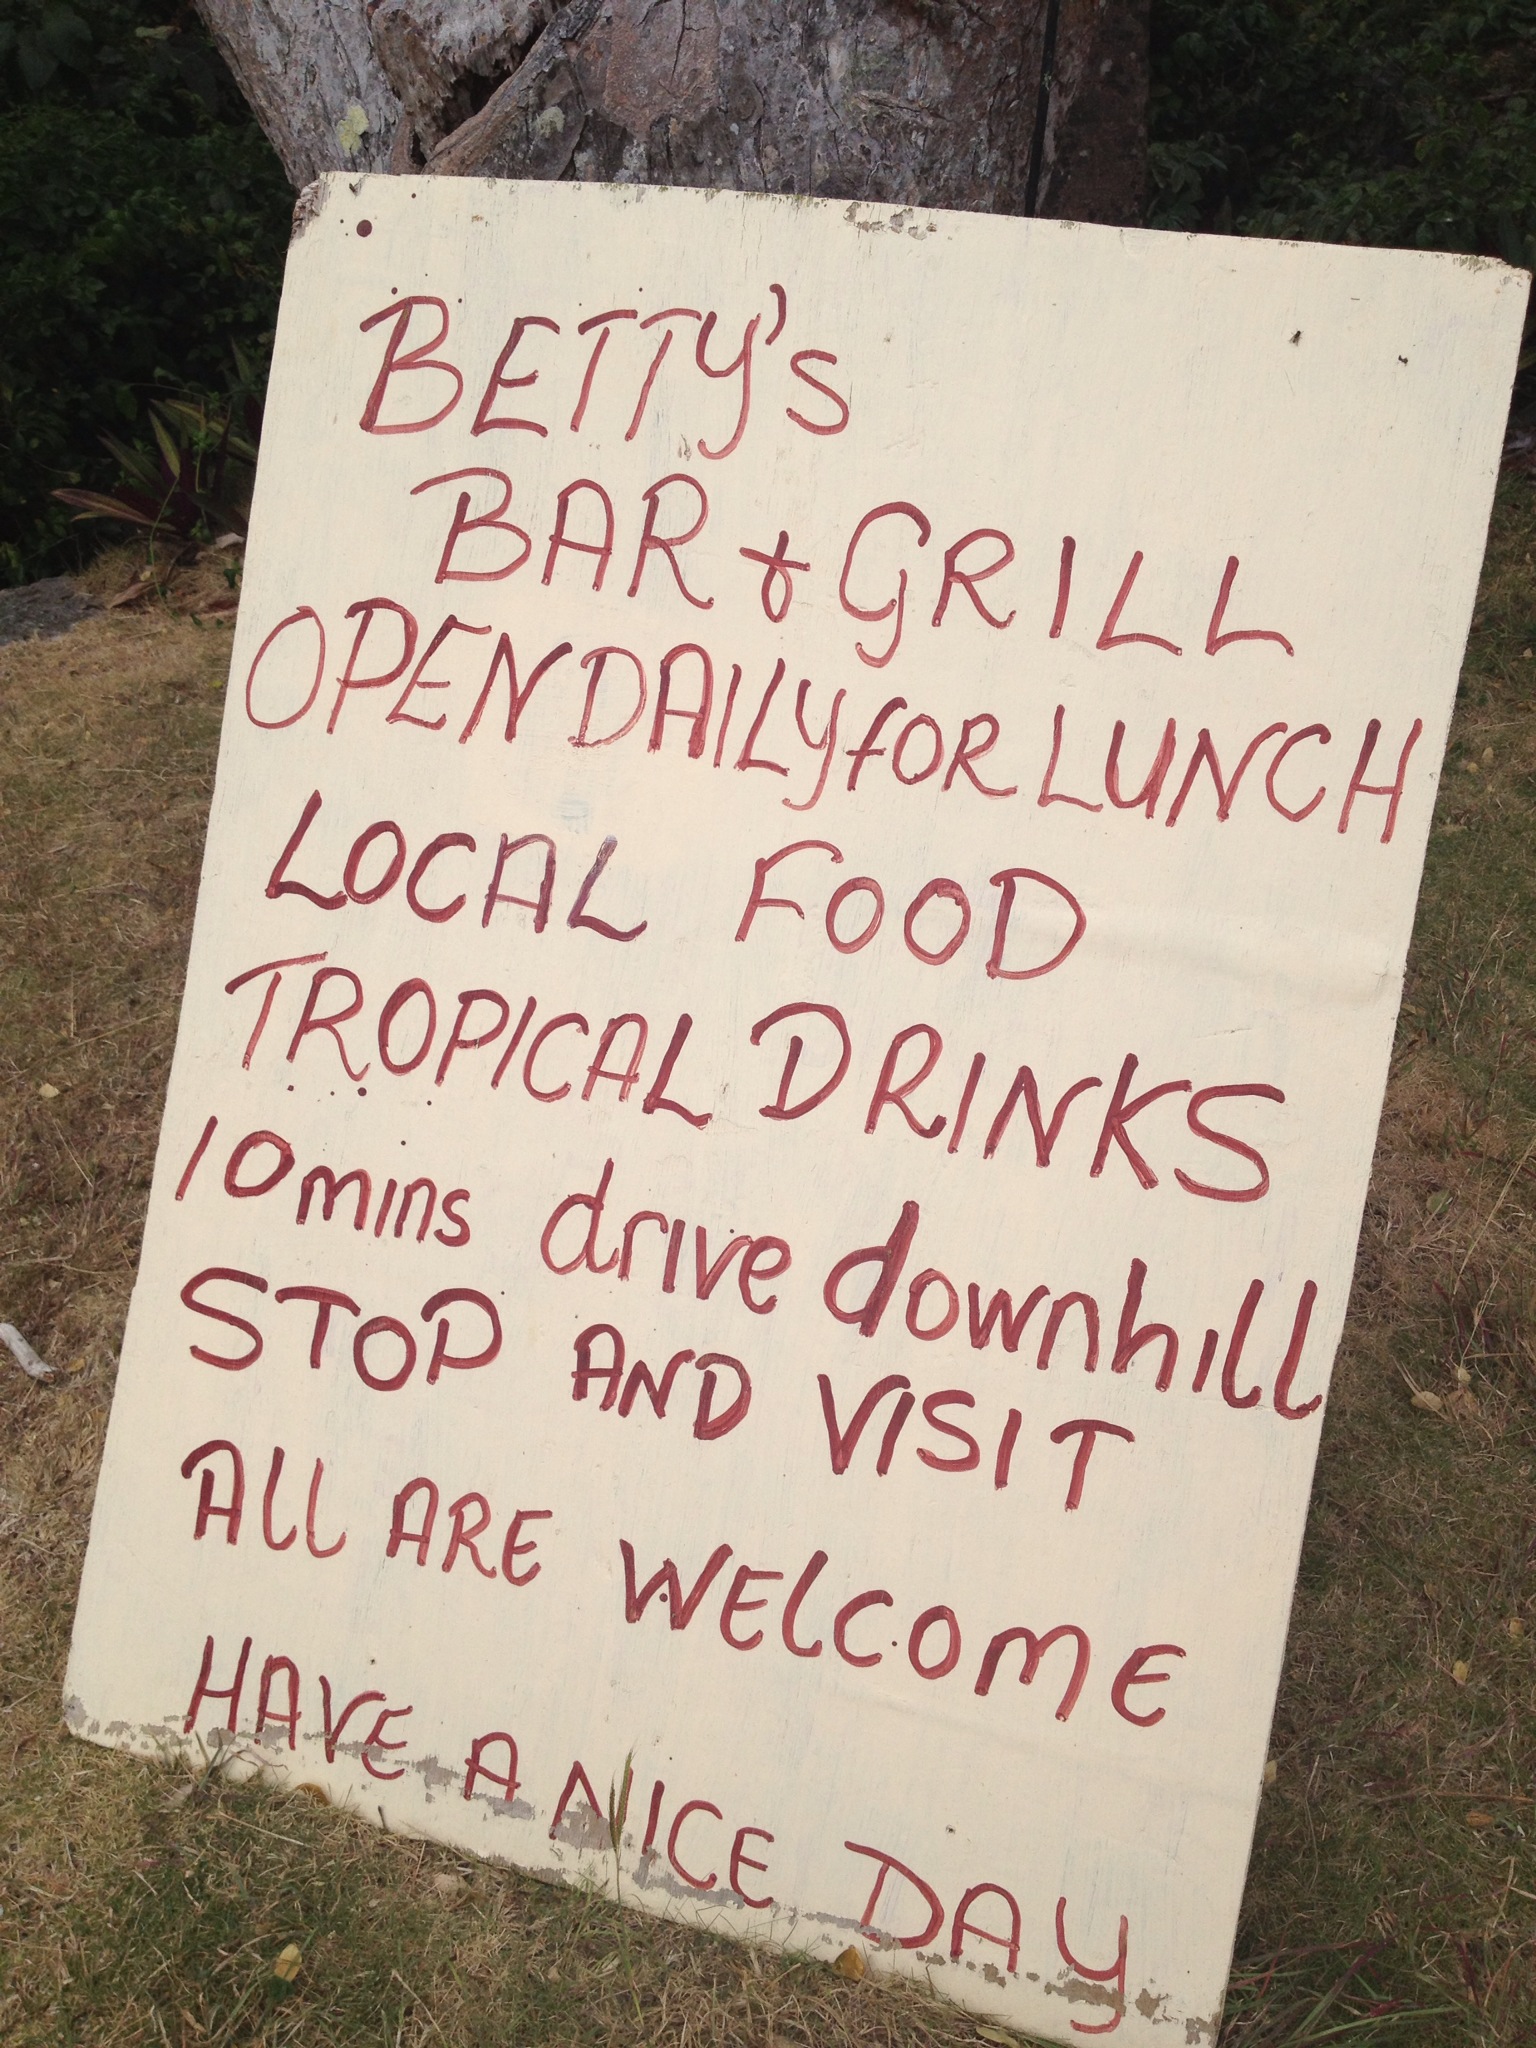 BETTY's
BAR & GRILL
OPEN DAILY fOR LUNCH
LOCAL FOOD
TROPICAL DRINKS
10 mins drive downhill
STOP AND VISIT
All ARE WElCOME
HAVE A NICE DAY